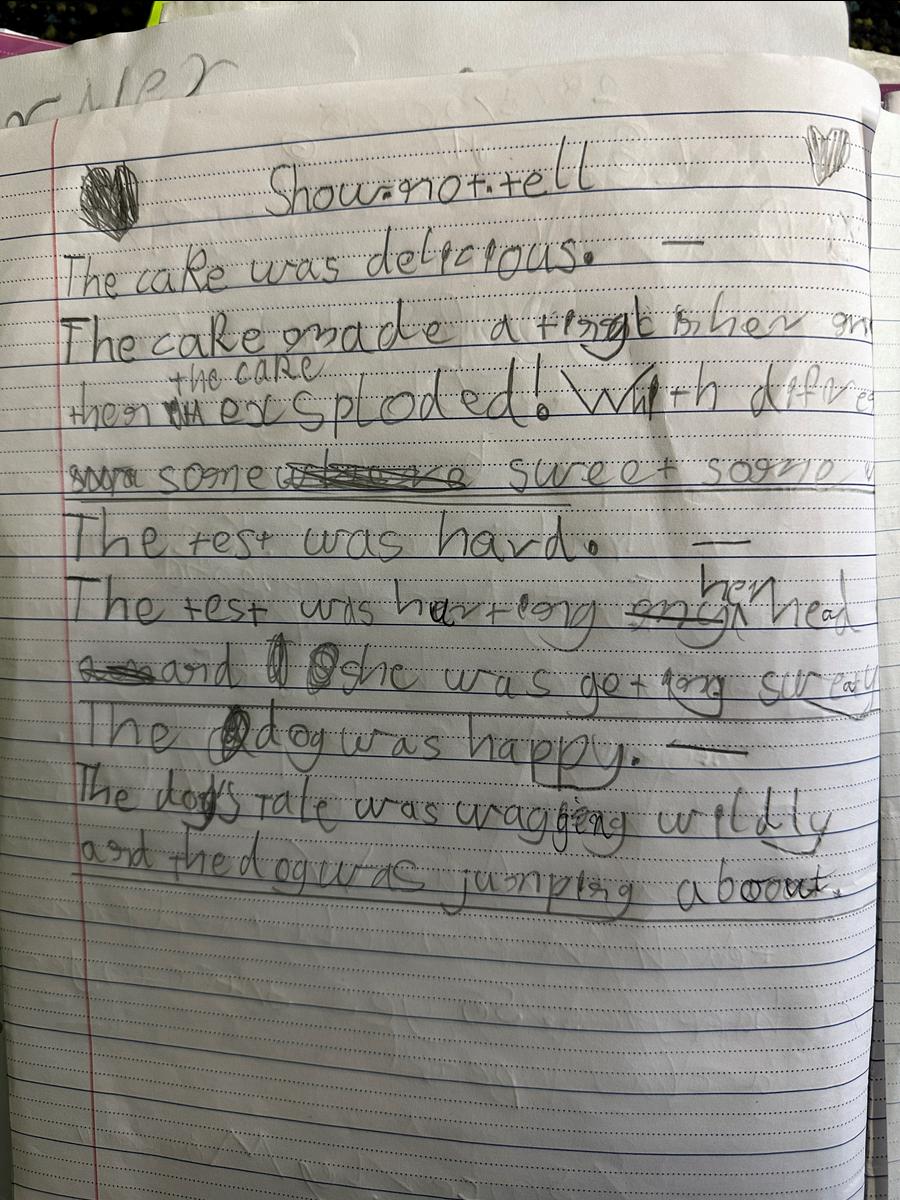 Show.not.tell
The cake was delicious. —
The cake made a
the cake
then exsploded! With
some sweet
The test was hard. —
The test was hearting her head
and she was geting sweaty
The dog was happy. —
The dog's tale was wagging wildly
and the dog was jumping aboout.